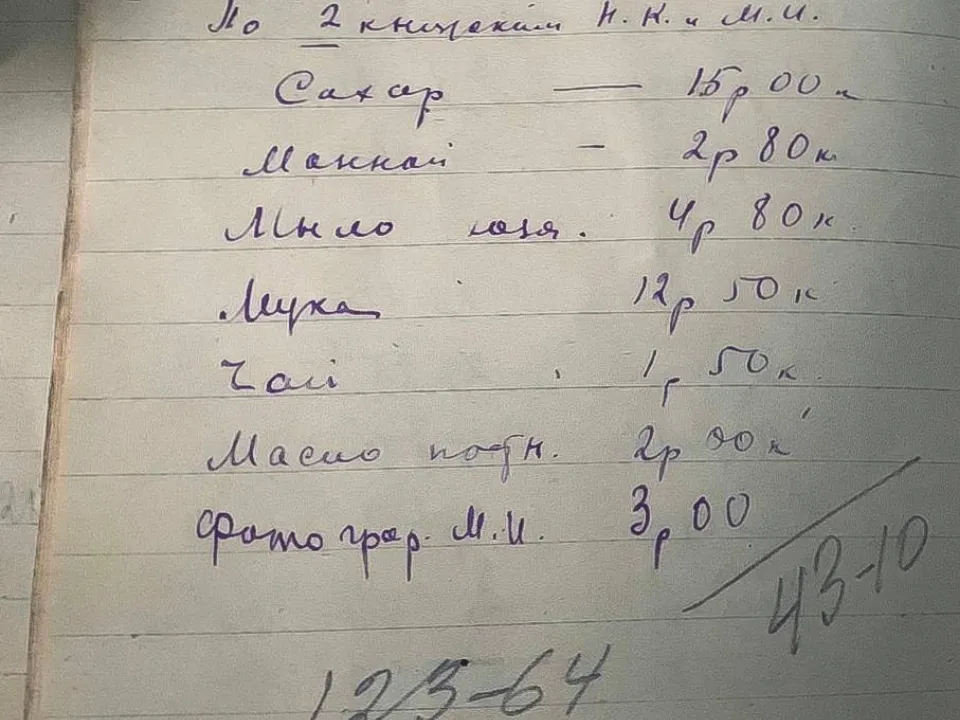 По 2 книжкам Н.К. и М.И.
Сахар — 15р 00к
Манная - 2р 80к
Мыло хозя. 4р 80к.
Мука 12р 50к
Чай 1р 50к.
Масло постн. 2р 00к
Фотограф. М.И. 3р 00
43-10
123-64